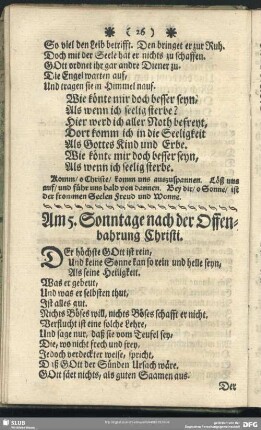 (26)
So viel den Leib betrifft. Den bringet er zur Ruh.
Doch mit der Seele hat er nichts zu schaffen.
GOtt ordnet ihr gar andre Diener zu.
Die Engel warten auf,
Und tragen sie in Himmel nauf.
Wie könte mir doch besser seyn?
Als wenn ich seelig sterbe?
Hier werd ich aller Noth befreyt,
Dort komm ich in die Seeligkeit
Als Gottes Kind und Erbe.
Wie könte mir doch besser seyn,
Als wenn ich seelig sterbe.
Komm/ o Christe/ komm uns auszuspannen. Löß uns
auf/ und führ uns bald von dannen. Bey dir/ o Sonne/ ist
der frommen Seelen Freud und Wonne.
Am 5. Sonntage nach der Offen-
bahrung Christi.
DEr höchste GOtt ist rein,
Und keine Sonne kan so rein und helle seyn,
Als seine Heiligkeit.
Was er gebeut,
Und was er selbsten thut,
Ist alles gut.
Nichts Böses will, nichts Böses schafft er nicht.
Verflucht ist eine solche Lehre,
Und sage nur, daß sie vom Teufel sey,
Die, wo nicht frech und frey,
Jedoch verdeckter weise, spricht,
Daß GOtt der Sünden Ursach wäre.
GOtt säet nichts, als guten Saamen aus.
Der